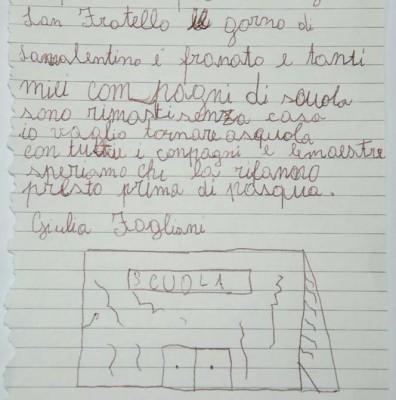 San Fratello il gorno di
sanvalentino è franato e tanti
miii com pagni di scuola
sono rimasti senza casa
io voglio tornare asquola
con tuttii i conpagni e lemaestre
speriamo chi la rifanno
presto prima di pasqua.
Giulia Fogliani
SCUOLA